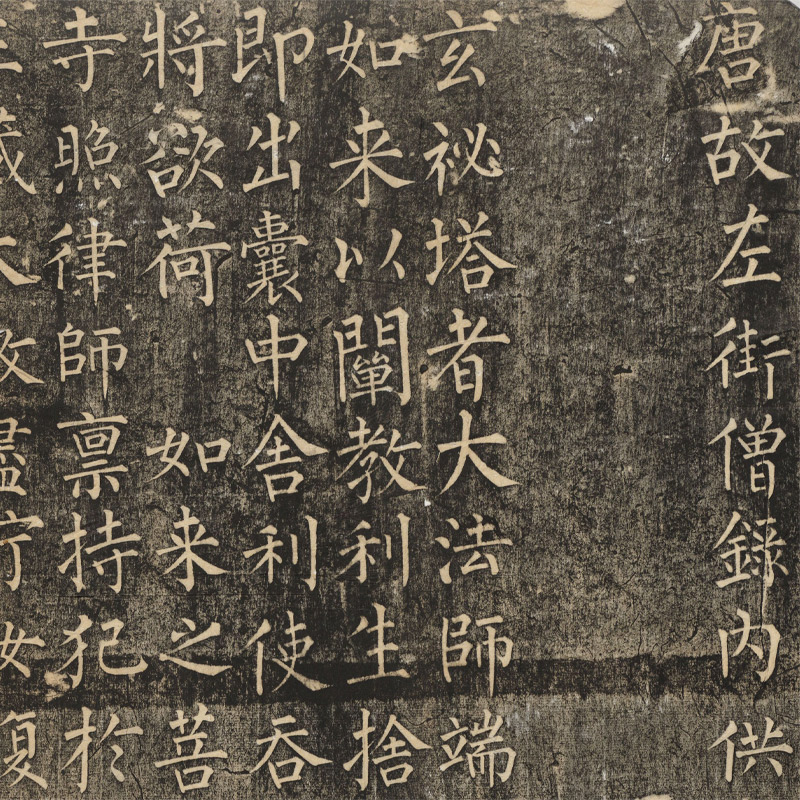 唐故左街僧錄內供
玄祕塔者大法師端
如来以闡教利生捨
即出囊中舍利使吞
將欲荷如来之菩
寺照律師禀持犯於